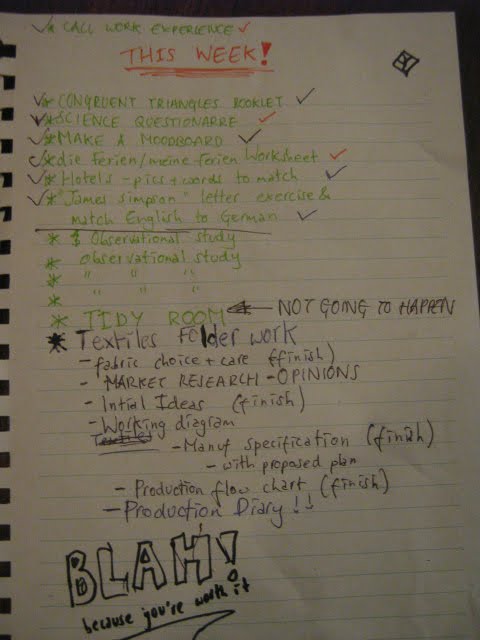 ✓* CALL WORK EXPERIENCE ✓
THIS WEEK!
✓* CONGRUENT TRIANGLES BOOKLET ✓
✓* SCIENCE QUESTIONARRE ✓
✓* MAKE A MOODBOARD ✓
✓* die ferien/meine ferien Worksheet ✓
✓* Hotels - pics + words to match ✓
✓* "James simpson" letter exercise &
match English to German ✓
* Observational study
* observational study
* " " "
* " " "
* TIDY ROOM ← NOT GOING TO HAPPEN
* Textiles Folder work
- fabric choice + care (finish)
- MARKET RESEARCH - OPINIONS
- Intial Ideas (finish)
- Working diagram
Textiles - Manuf specification (finish)
- with proposed plan
- Production flow chart (finish)
- Production Diary !!
BLAH!
because you're worth it